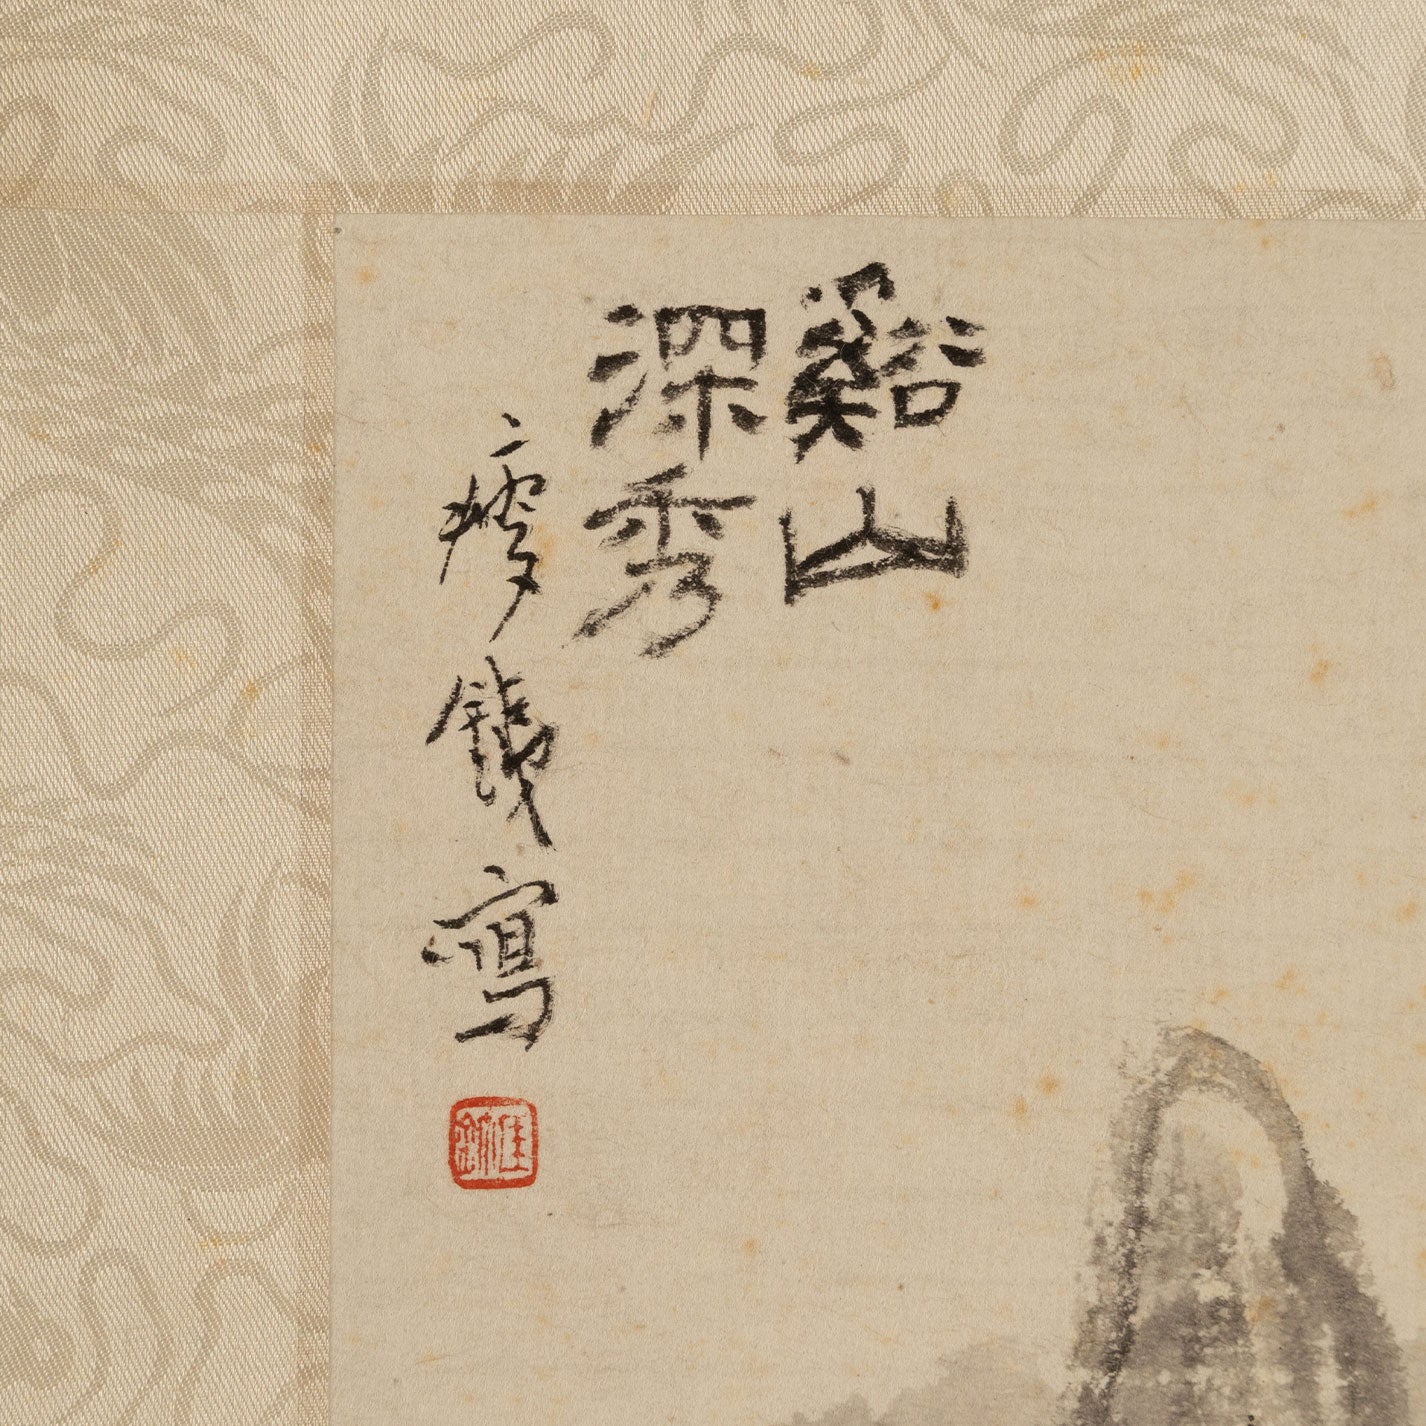 谿山
深秀
瘦鐵寫